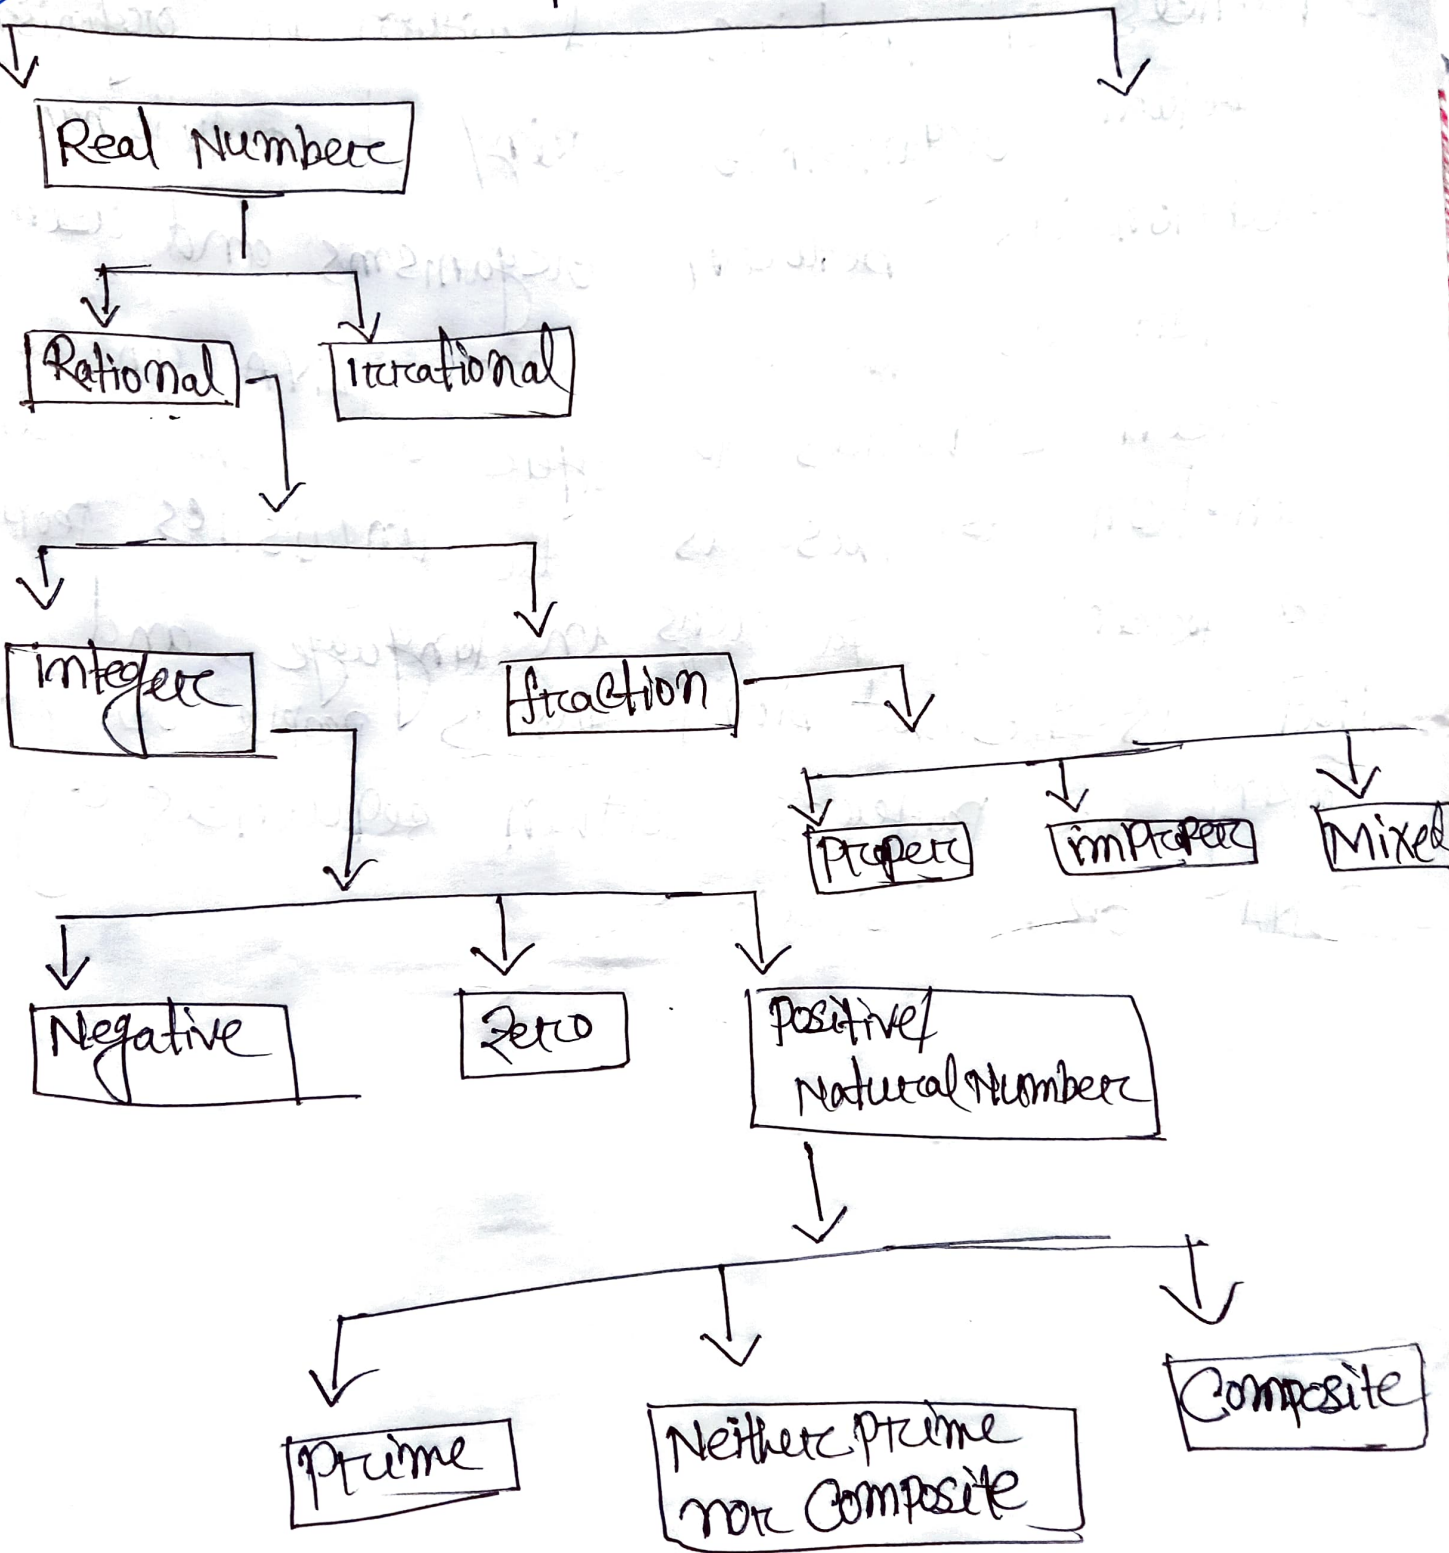 Real Number
Rational
Irrational
integer
fraction
Proper
improper
Mixed
Negative
Zero
Positive/
Natural Number
Prime
Neither prime
nor Composite
Composite